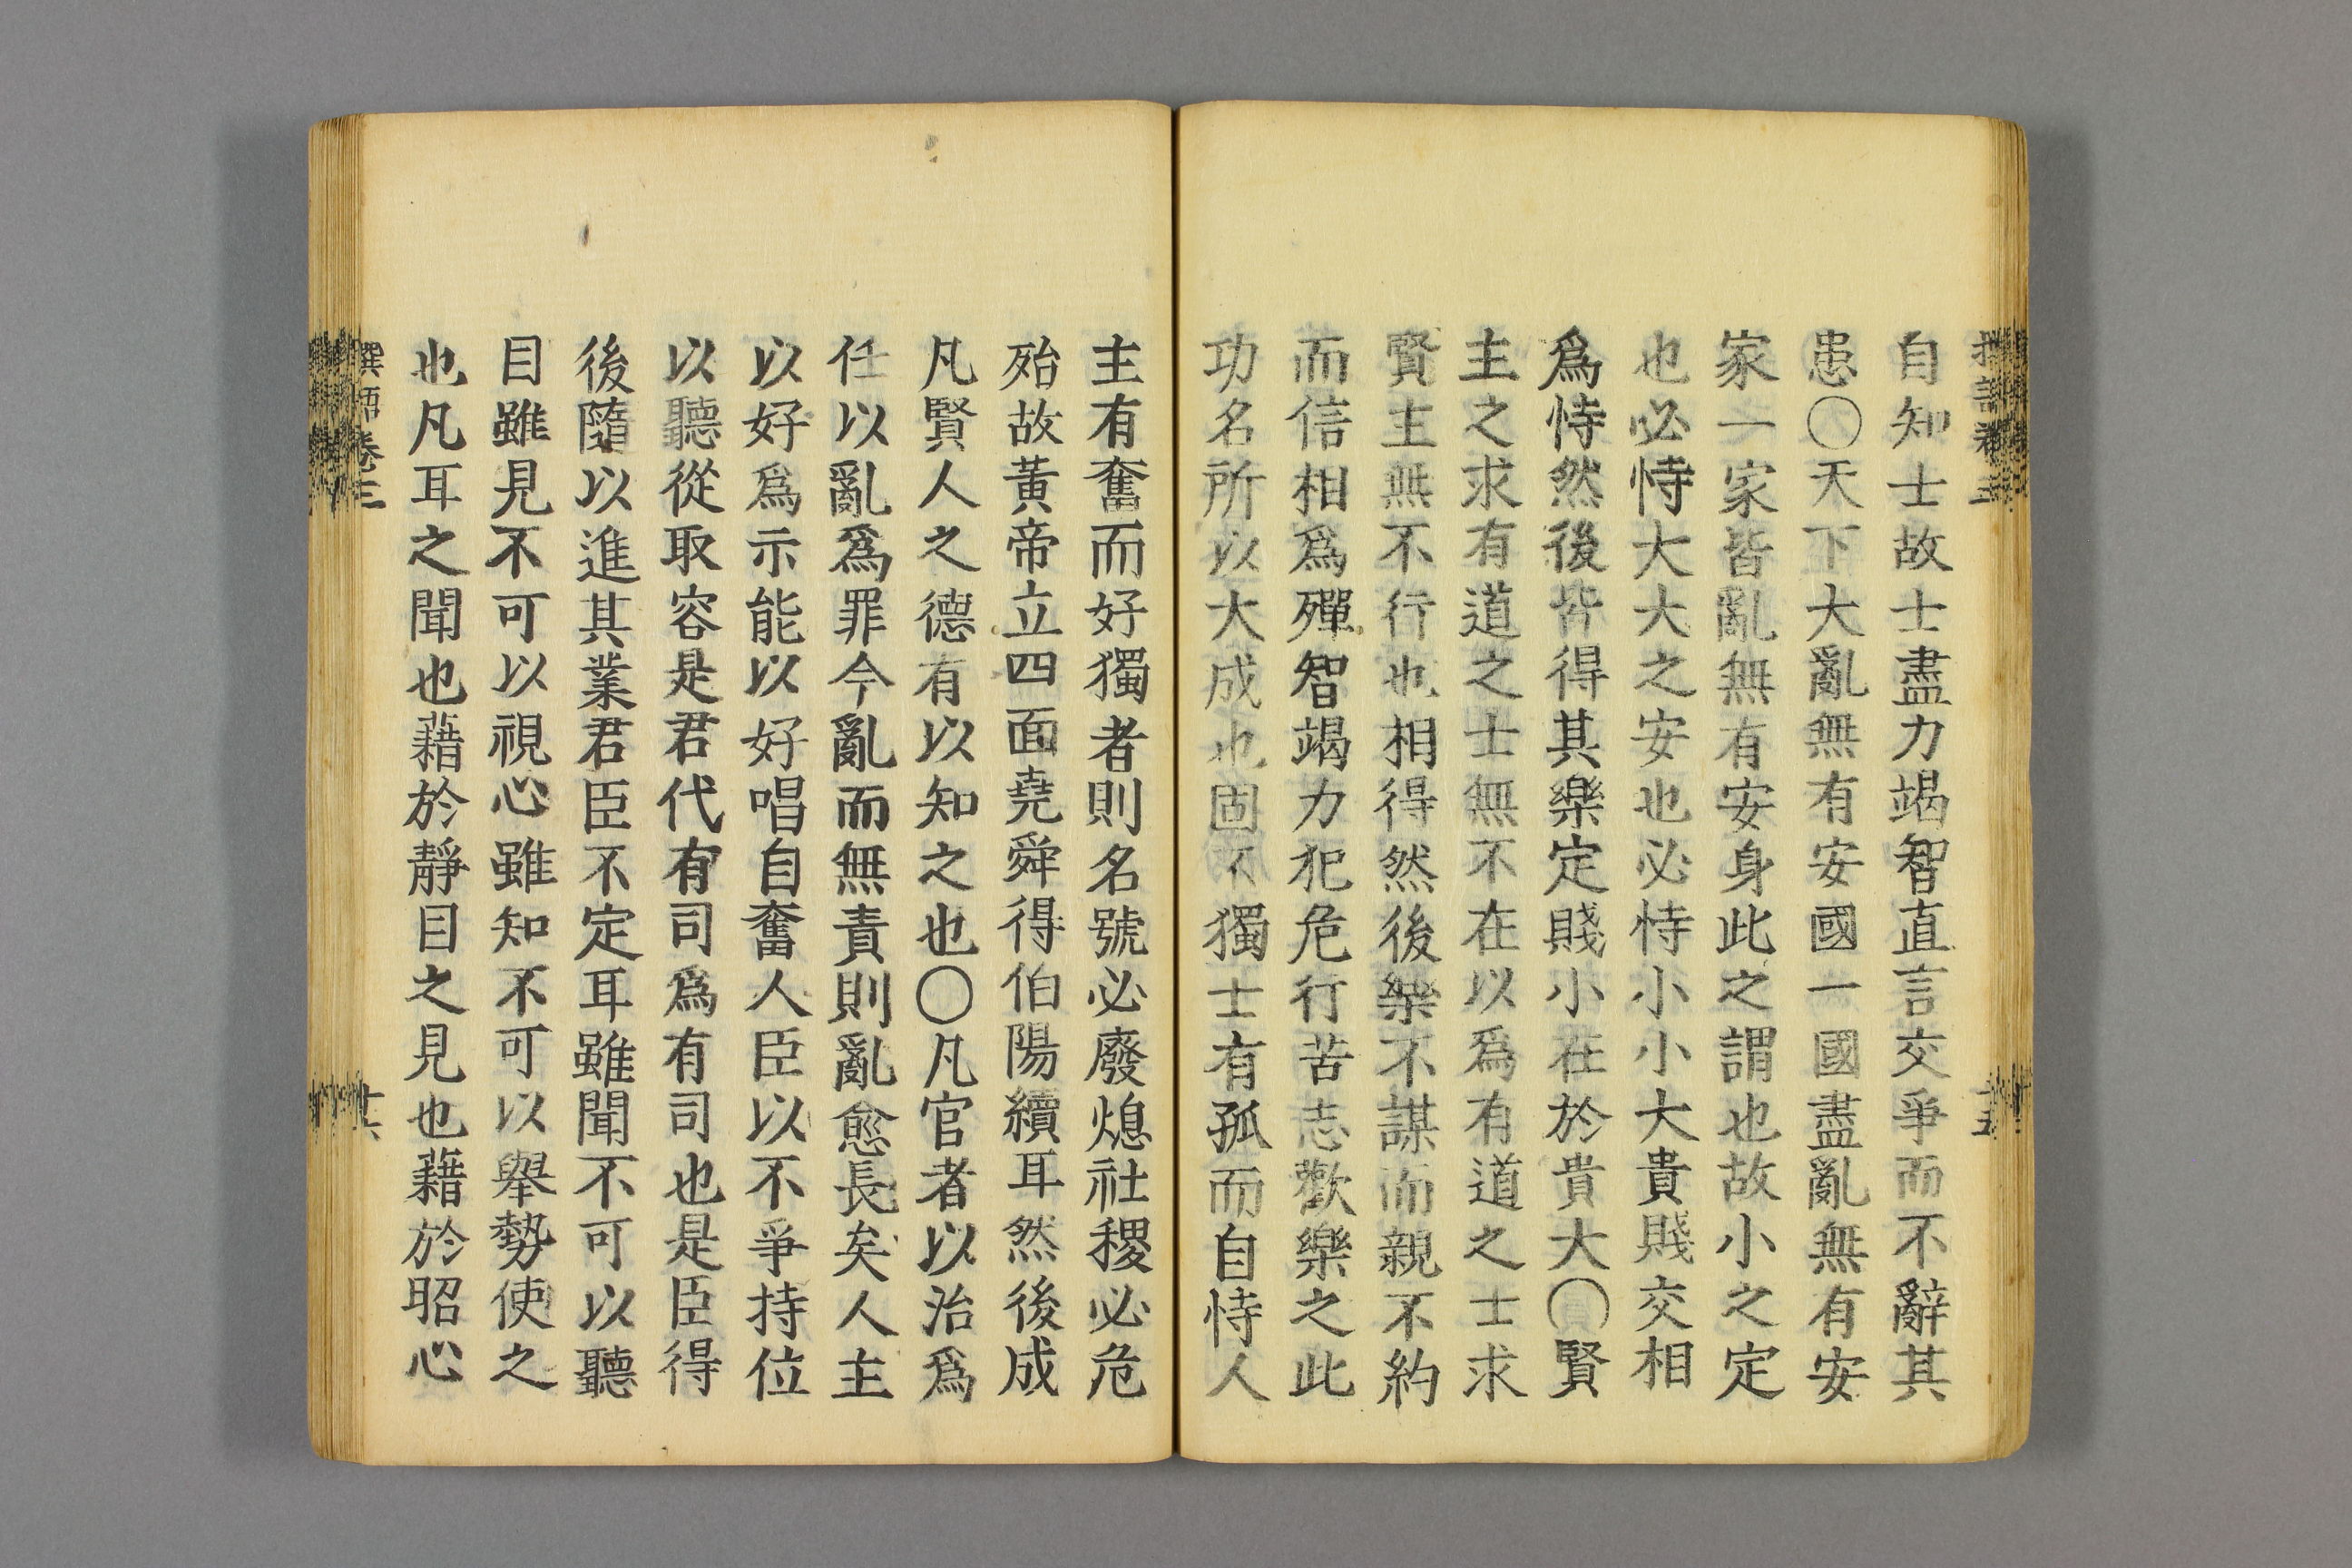 自知士故士盡力竭智直言交爭而不辭其
患〇天下大亂無有安國一國盡亂無有安
家一家皆亂無有安身此之謂也故小之定
也必恃大大之安也必恃小小大貴賤交相
爲恃然後皆得其樂定賤小在於貴大〇賢
主之求有道之士無不在以爲有道之士求
賢主無不行也相得然後樂不謀而親不約
而信相爲殫智竭力犯危行苦志歡樂之此
功名所以大成也固不獨士有孤而自恃人
主有奮而好獨者則名號必廢熄社稷必危
殆故黃帝立四面堯舜得伯陽續耳然後成
凡賢人之德有以知之也〇凡官者以治爲
任以亂爲罪今亂而無責則亂愈長矣人主
以好爲示能以好唱自奮人臣以不爭持位
以聽從取容是君代有司爲有司也是臣得
後隨以進其業君臣不定耳雖聞不可以聽
目雖見不可以視心雖知不可以舉勢使之
也凡耳之聞也藉於靜目之見也藉於昭心
卷三
十六